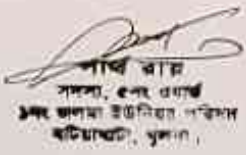 পার্থ রায়
সদস্য, ৫নং ওয়ার্ড
১নং জলমা ইউনিয়ন পরিষদ
বটিয়াঘাটা, খুলনা।